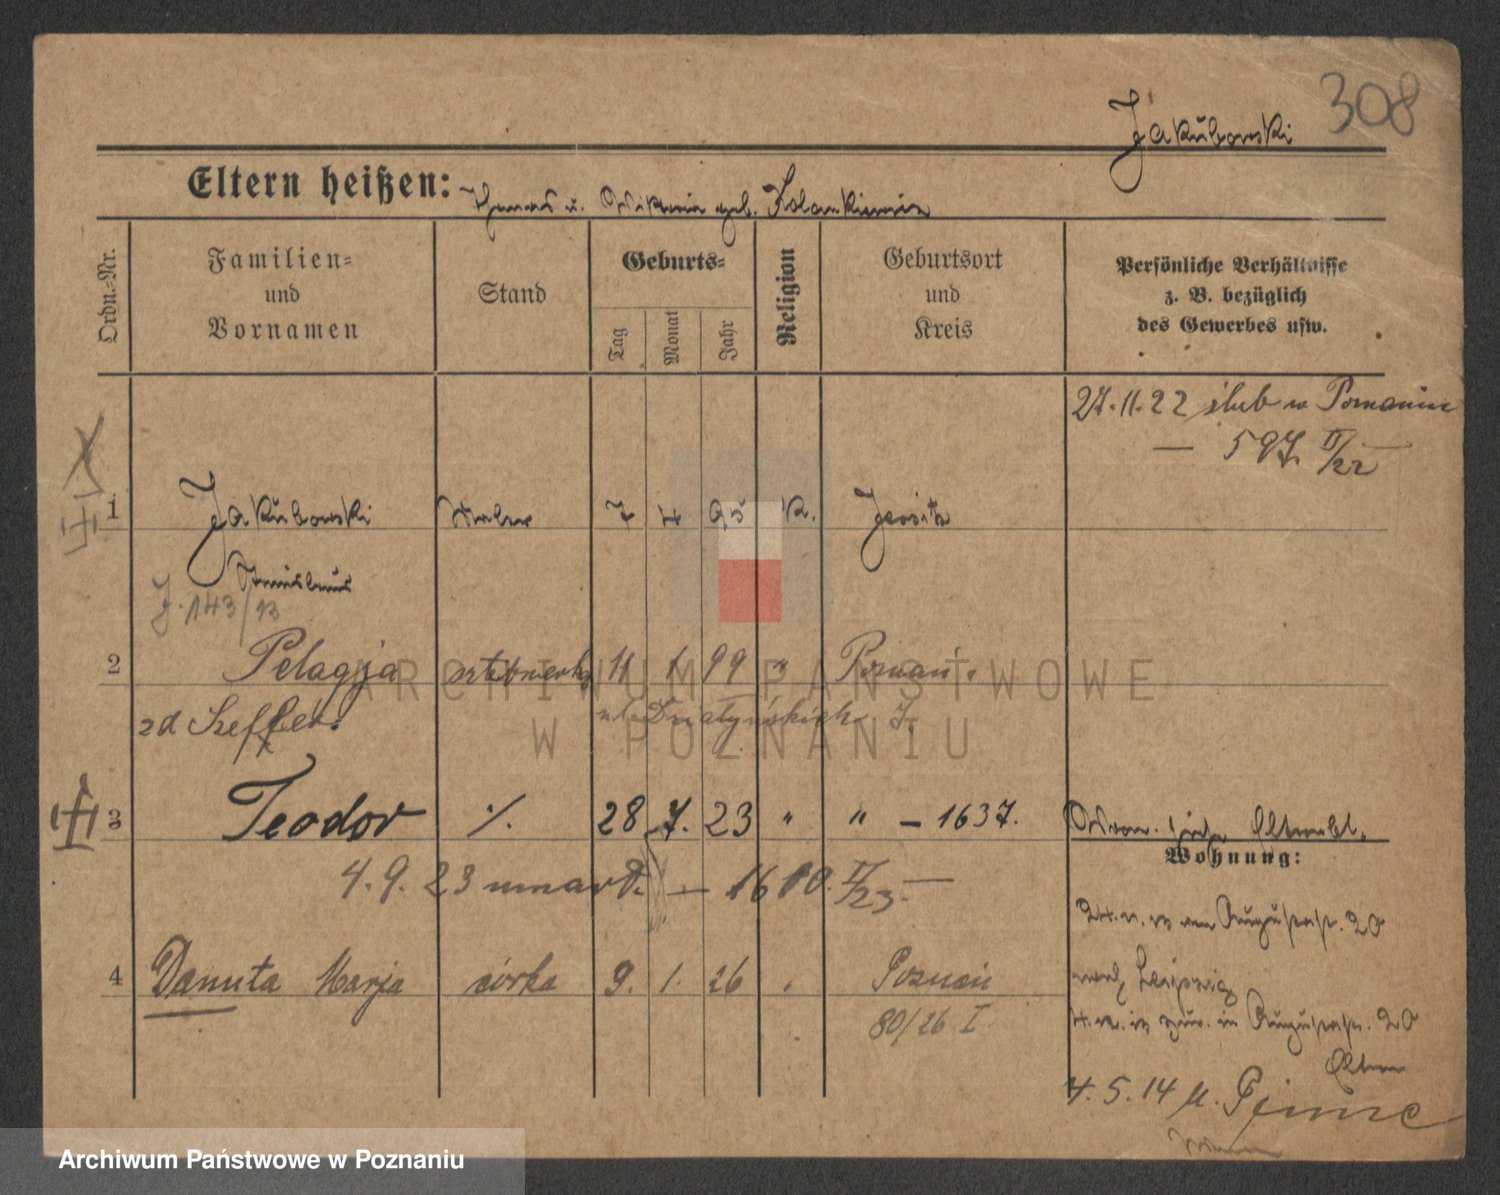 308
Jakubowski
Eltern heißen: Thomas u. Viktoria geb.
Ordn.-Nr.
Familien- und Vornamen
Stand
Geburts-
Tag
Monat
Jahr
Religion
Geburtsort und Kreis
Persönliche Verhältnisse z. B. bezüglich des Gewerbes usw.
27.11.22 ślub w Poznaniu
— 597 II/22 —
1 Jakubowski 7 4 95 K. Jersitz
Stanislaus
J. 143/13
2 Pelagja 11 1 99 " Poznań.
zd Szeffler.
3 Teodor ·/. 28 7. 23 " " — 1637.
4. 9. 23 umarł. — 1600. II/23. —
Wohnung:
24. 11. 13 Augustastr. 20
4 Danuta Marja córka 9. 1. 26 Poznań
nach Leipzig
80/26 I
in Augustastr. 20
Eltern
4. 5. 14 n. Pinne
ARCHIWUM PAŃSTWOWE
W POZNANIU
Archiwum Państwowe w Poznaniu